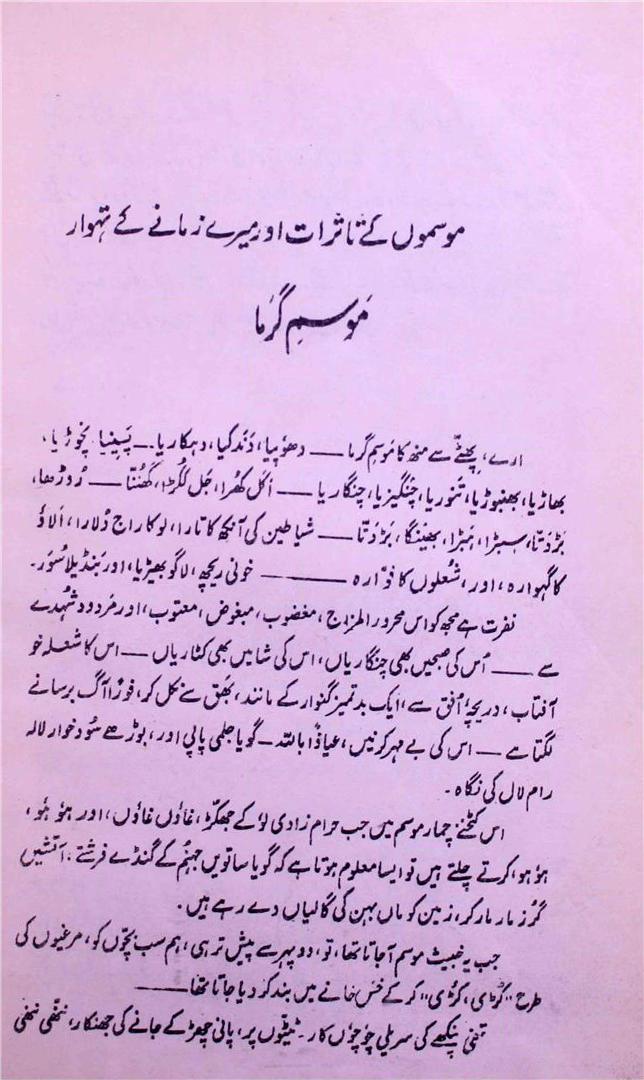 موسموں کے تاثرات اور میرے زمانے کے تہوار
مَوسمِ گرما
ارے، پھٹے سے منھ کا موسم گرما —— دھوپیا، دَندگیا، دہکاریا — پسینیا نچوڑیا،
بھاڑیا، بھنبوڑیا، تنوریا، چنگیزیا، چنگاریا —— اکل کھرا، جل ککڑا، گھُنّتا ——
بَڑدَتا، سبڑا، ہَبڑا، بھینگا، بَڑدَتا —— شیاطین کی آنکھ کا تارا، لو کا راج دُلارا، الاؤ
کا گہوارہ، اور، شعلوں کا فوّارہ —— خونی ریچھ، لاگو بھیڑیا، اور بَنڈیلا سُوَر۔
نفرت ہے مجھ کو اس محرور المزاج، مغضوب، مبغوض، معتوب، اور مردود شُہدے
سے —— اُس کی صبحیں بھی چنگاریاں، اس کی شامیں بھی کٹاریاں — اس کا شعلہ خو
آفتاب، دریچۂ اُفق سے، ایک بدتمیز گنوار کے مانند، بھَق سے نکل کر، فوراً آگ برسانے
لگتا ہے — اس کی بے مہر کرنیں، عیاذاً باللہ — گویا جلمی پاپی اور، بوڑھے سُود خوار لالہ
رام لال کی نگاہ۔
اس کٹنے چمار موسم میں جب حرام زادی لُو کے جھکڑ، غاؤں غاؤں، اور ہُو ہُو،
ہُو ہُو، کرتے چلتے ہیں تو ایسا معلوم ہوتا ہے کہ گویا ساتویں جہنم کے گنڈے فرشتے، آتشیں
گرز مار مار کر، زمین کو ماں بہن کی گالیاں دے رہے ہیں۔
جب یہ خبیث موسم آ جاتا تھا، تو، دوپہر سے پیش تر ہی، ہم سب بچّوں کو، مرغیوں کی
طرح "کُڑی، کُڑی" کر کے خس خانے میں بند کر دیا جاتا تھا ——
پنکھے کی سریلی چُوں چُوں کار۔ ٹٹیوں پر، پانی چھڑکے جانے کی جھنکار، ننھی ننھی